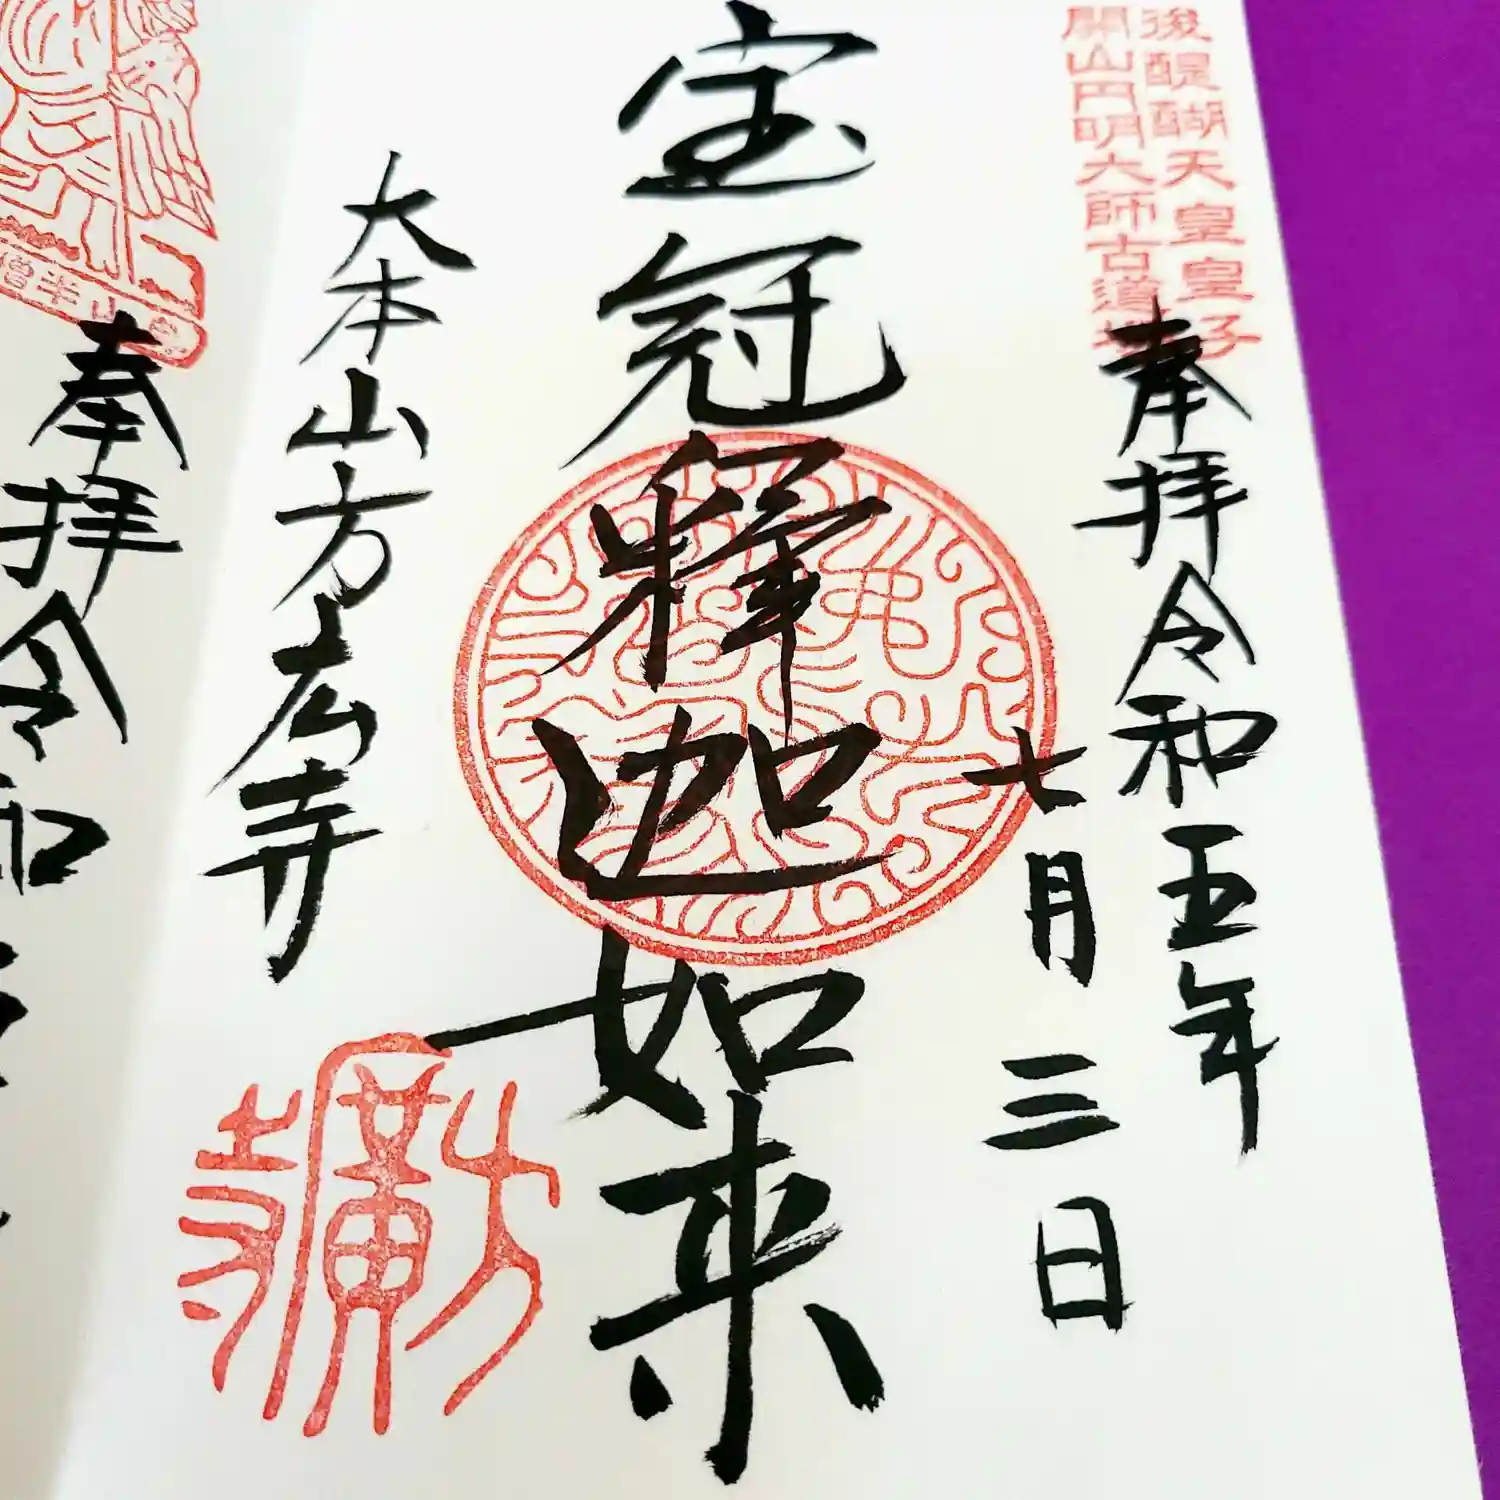 後醍醐天皇皇子
開山円明大師古道場
奉拝令和五年
七月三日
宝冠釋迦如来
大本山方広寺
方廣寺
半僧
奉拝令和